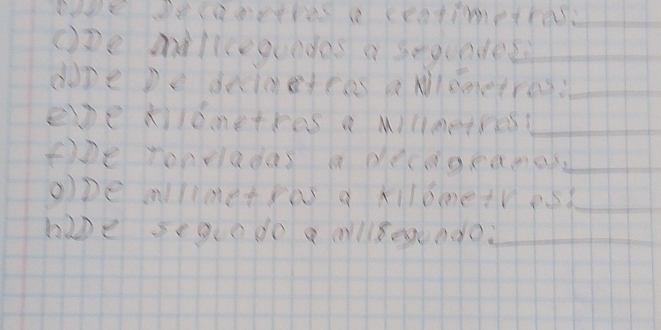 b) De Decámetros a centímetros:
c) De milicegundos a segundos:
d) De De decímetros a kilómetros:
e) De kilómetros a milímetros:
f) De toneladas a decagramos:
g) De milímetros a kilómetros:
h) De segundo a milisegundo: